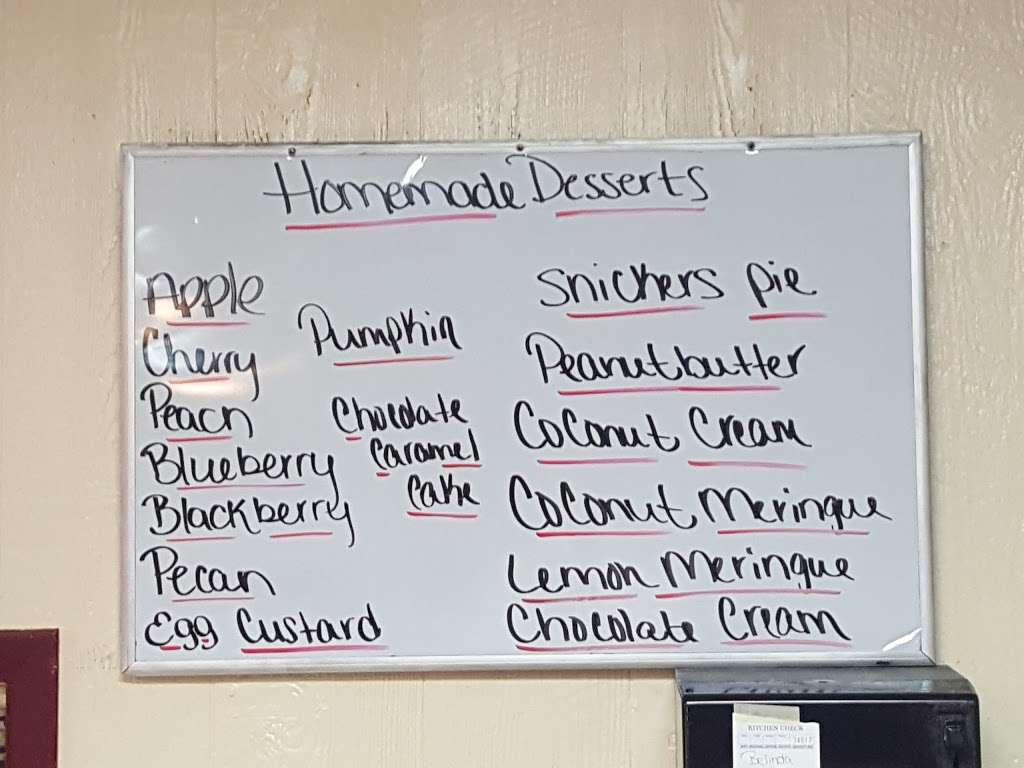 Homemade Desserts
Apple
Cherry
Peach
Blueberry
Blackberry
Pecan
Egg Custard
Pumpkin
Chocolate
Caramel
Cake
Snickers pie
Peanutbutter
Coconut Cream
Coconut Meringue
Lemon Meringue
Chocolate Cream
KITCHEN CHECK
Belinda